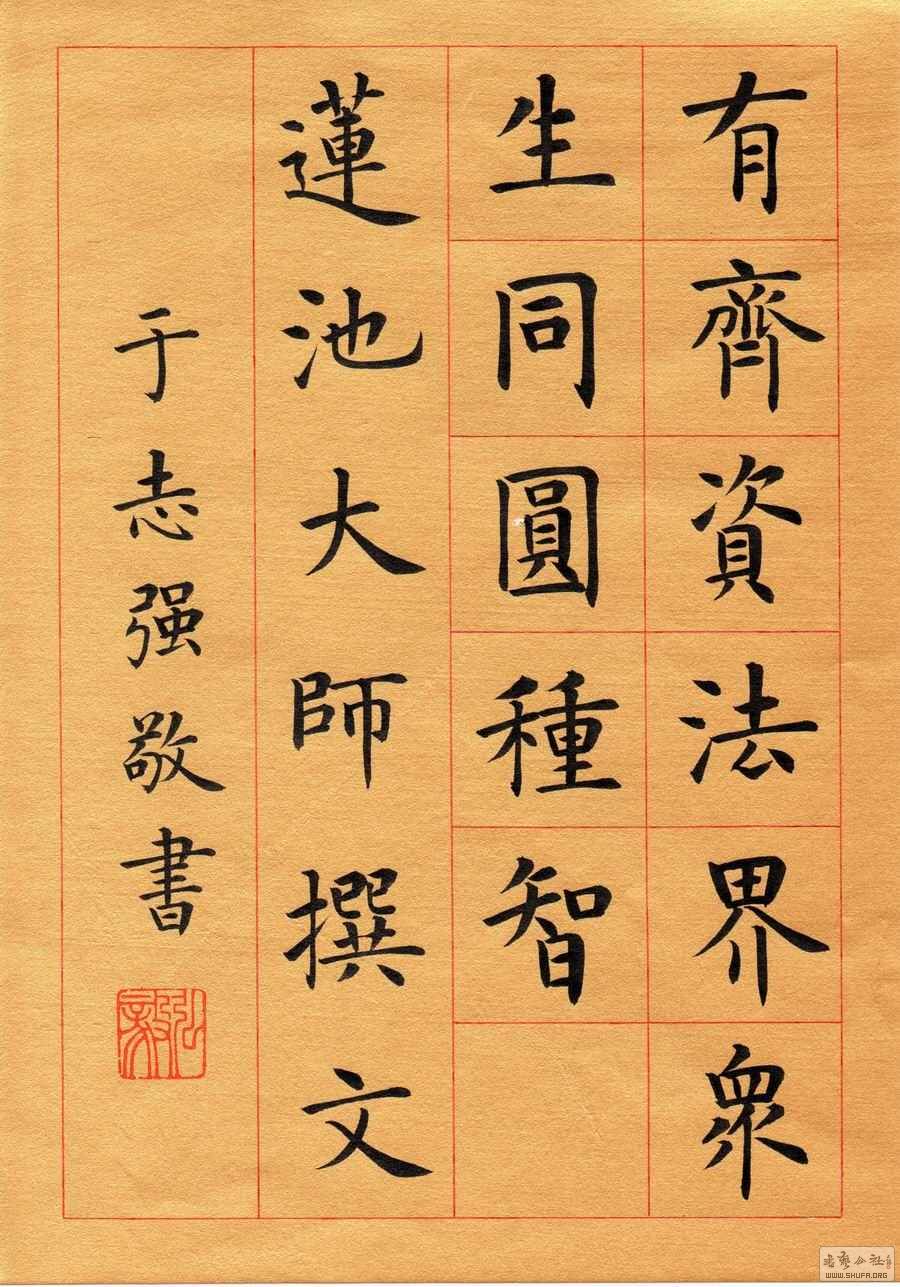 有齊資法界衆
生同圓種智
蓮池大師撰文
于志强敬書
WWW.SHUFA.ORG